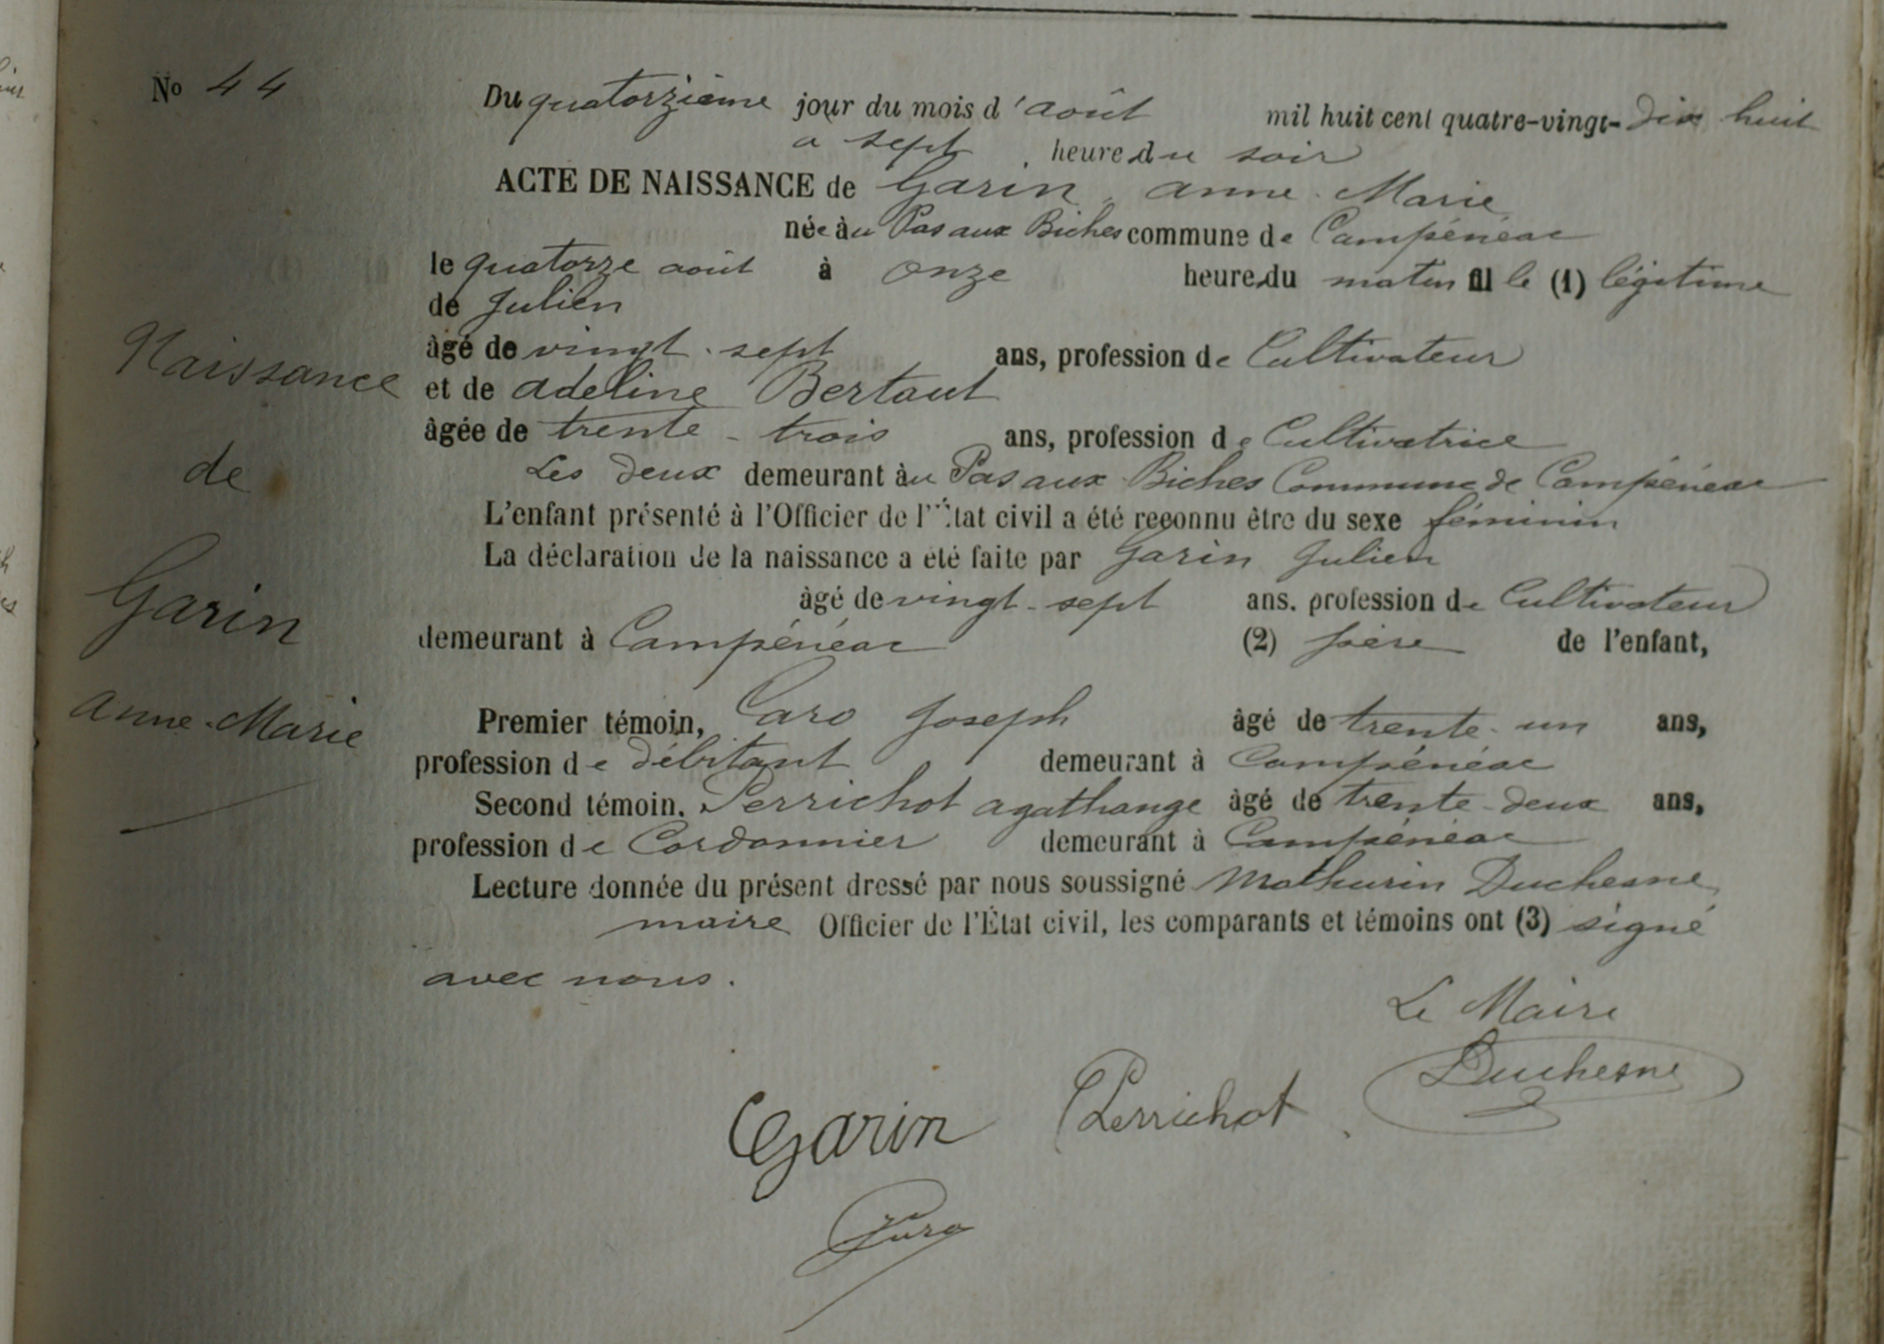 No 44
Du quatorzième jour du mois d'août mil huit cent quatre-vingt-dix huit
a sept heure du soir
ACTE DE NAISSANCE de Garin, anne-Marie
née àu Pas aux Biches commune de Campénéac
le quatorze août à onze heure du matin fil le (1) légitime
de Julien
âgé de vingt-sept ans, profession de Cultivateur
et de adeline Bertaut
âgée de trente-trois ans, profession de Cultivatrice
Les deux demeurant àu Pas aux Biches Commune de Campénéac
L'enfant présenté à l'Officier de l'État civil a été reconnu être du sexe féminin
La déclaration de la naissance a été faite par Garin Julien
âgé de vingt-sept ans. profession de Cultivateur
demeurant à Campénéac (2) père de l'enfant,
Premier témoin, Caro Joseph âgé de trente-un ans,
profession de débitant demeurant à Campénéac
Second témoin, Perrichot agathange âgé de trente-deux ans,
profession de Cordonnier demeurant à Campénéac
Lecture donnée du présent dressé par nous soussigné Mathurin Duchesne,
maire Officier de l'État civil, les comparants et témoins ont (3) signé
avec nous.
Naissance
de
Garin
anne-Marie
Le Maire
Duchesne
Garin Perrichot
Caro